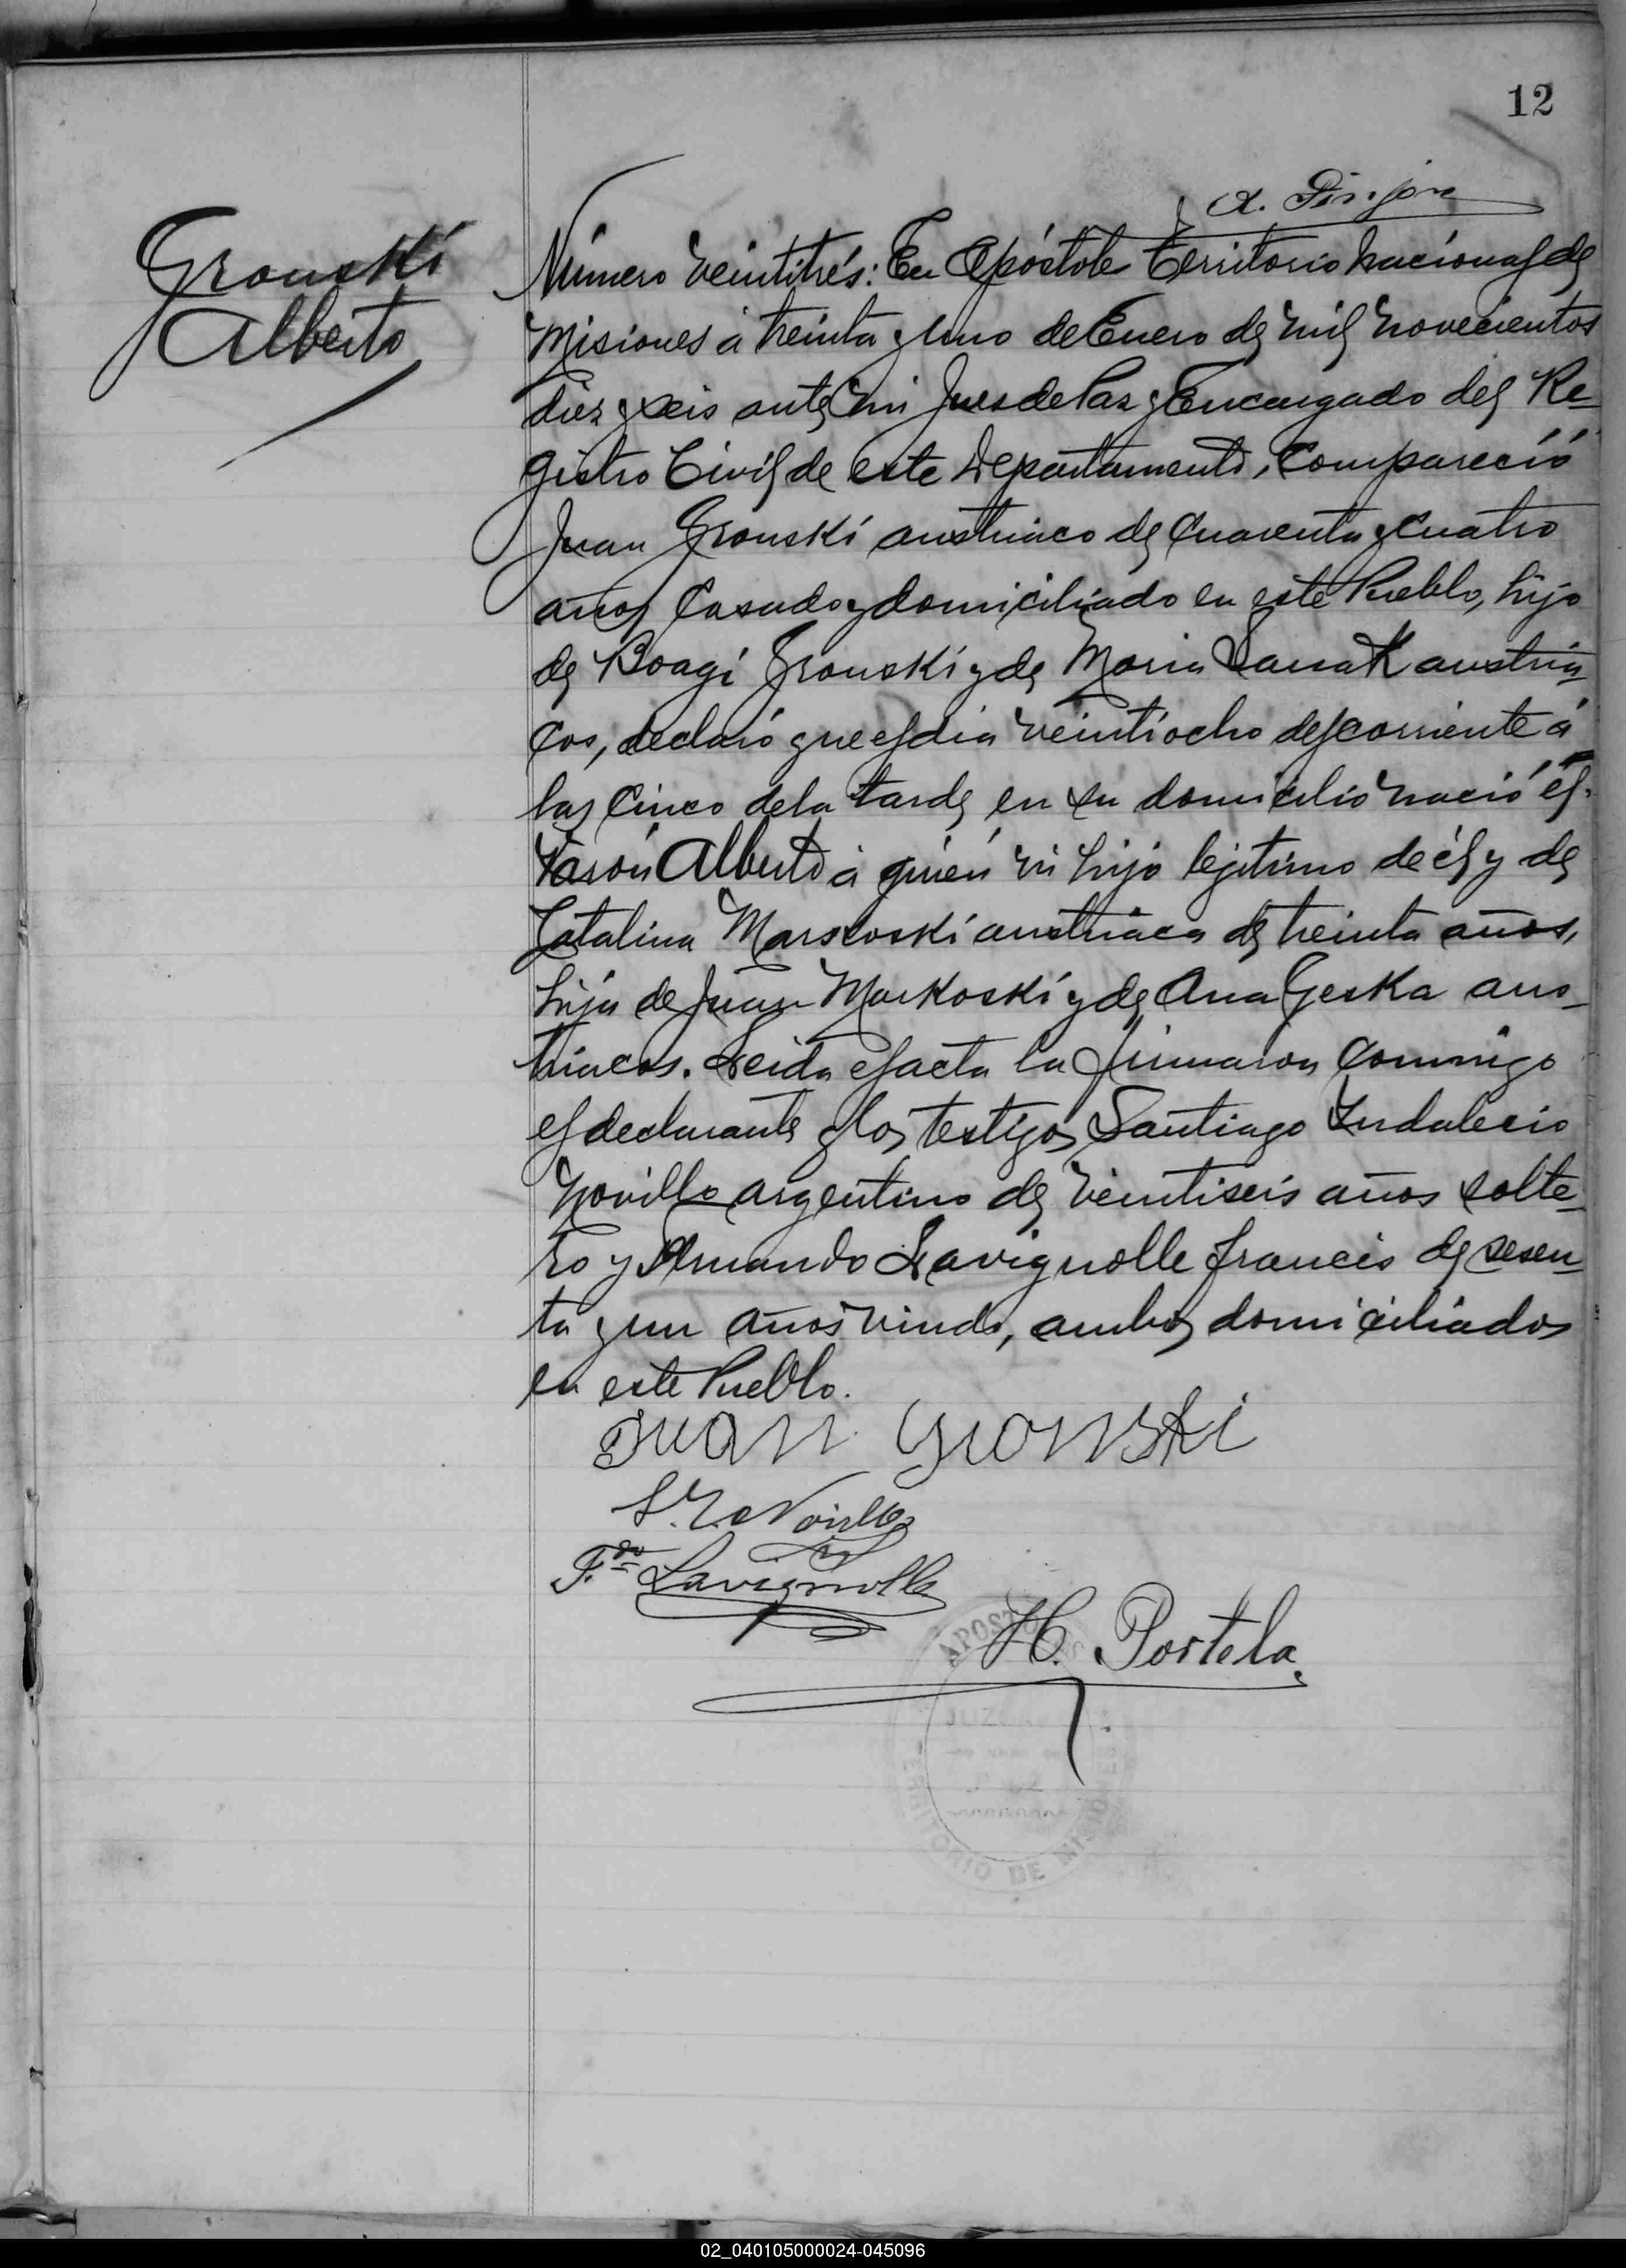 12
Gronski
Alberto
Número veintitrés: En Apóstole Territorio Nacional de
Misiones á treinta y uno de Enero de mil novecientos
diez y seis ante mi Jues de Paz y Encargado del Re-
gistro Civil de este Departamento, Compareció
Juan Gronski austriaco de Cuarenta y cuatro
años Casado y domiciliado en este Pueblo, hijo
de Boagi Gronski y de Maria austria-
cos, declaró que el dia veintiocho del corriente á
las Cinco de la tarde en su domicilio nació el
Varón Alberto á quien vi hijo lejitimo de él y de
Catalina austriaca de treinta años,
hija de Juan Markoski y de Ana Geska aus-
triacos. Leida el acta la firmaron Conmigo
el declarante y los testigos Santiago Indalecio
Novillo argentino de veintiseis años solte-
ro y Armando Lavignolle francés de sesen-
ta y un años viudo, ambos domiciliados
en este Pueblo.
Juan Gronski
S. I. Novillo
F.do Lavignolle
H. Portela
APOSTOLES
JUZ
TERRITORIO DE MISIONES
02_040105000024-045096